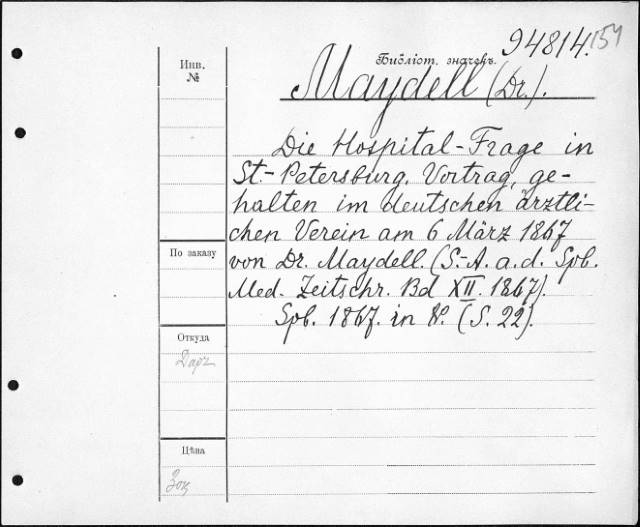 94814. 154
Библіот. значекъ.
Инв.
№
Maydell (Dr.).
Die Hospital-Frage in
St.-Petersburg. Vortrag, ge-
halten im deutschen ärztli-
chen Verein am 6 März 1867
von Dr. Maydell. (S.-A. a. d. Spb.
Med. Zeitschr. Bd XII. 1867).
Spb. 1867. in 8º. (S. 22).
По заказу
Откуда
Даръ
Цѣна